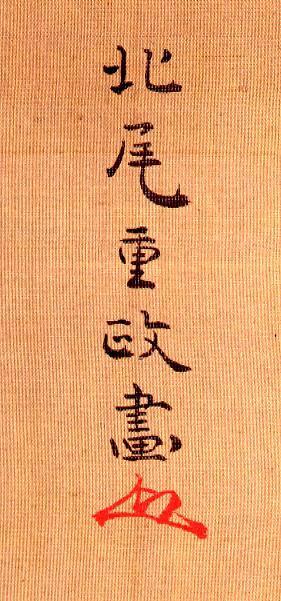 北尾重政畫